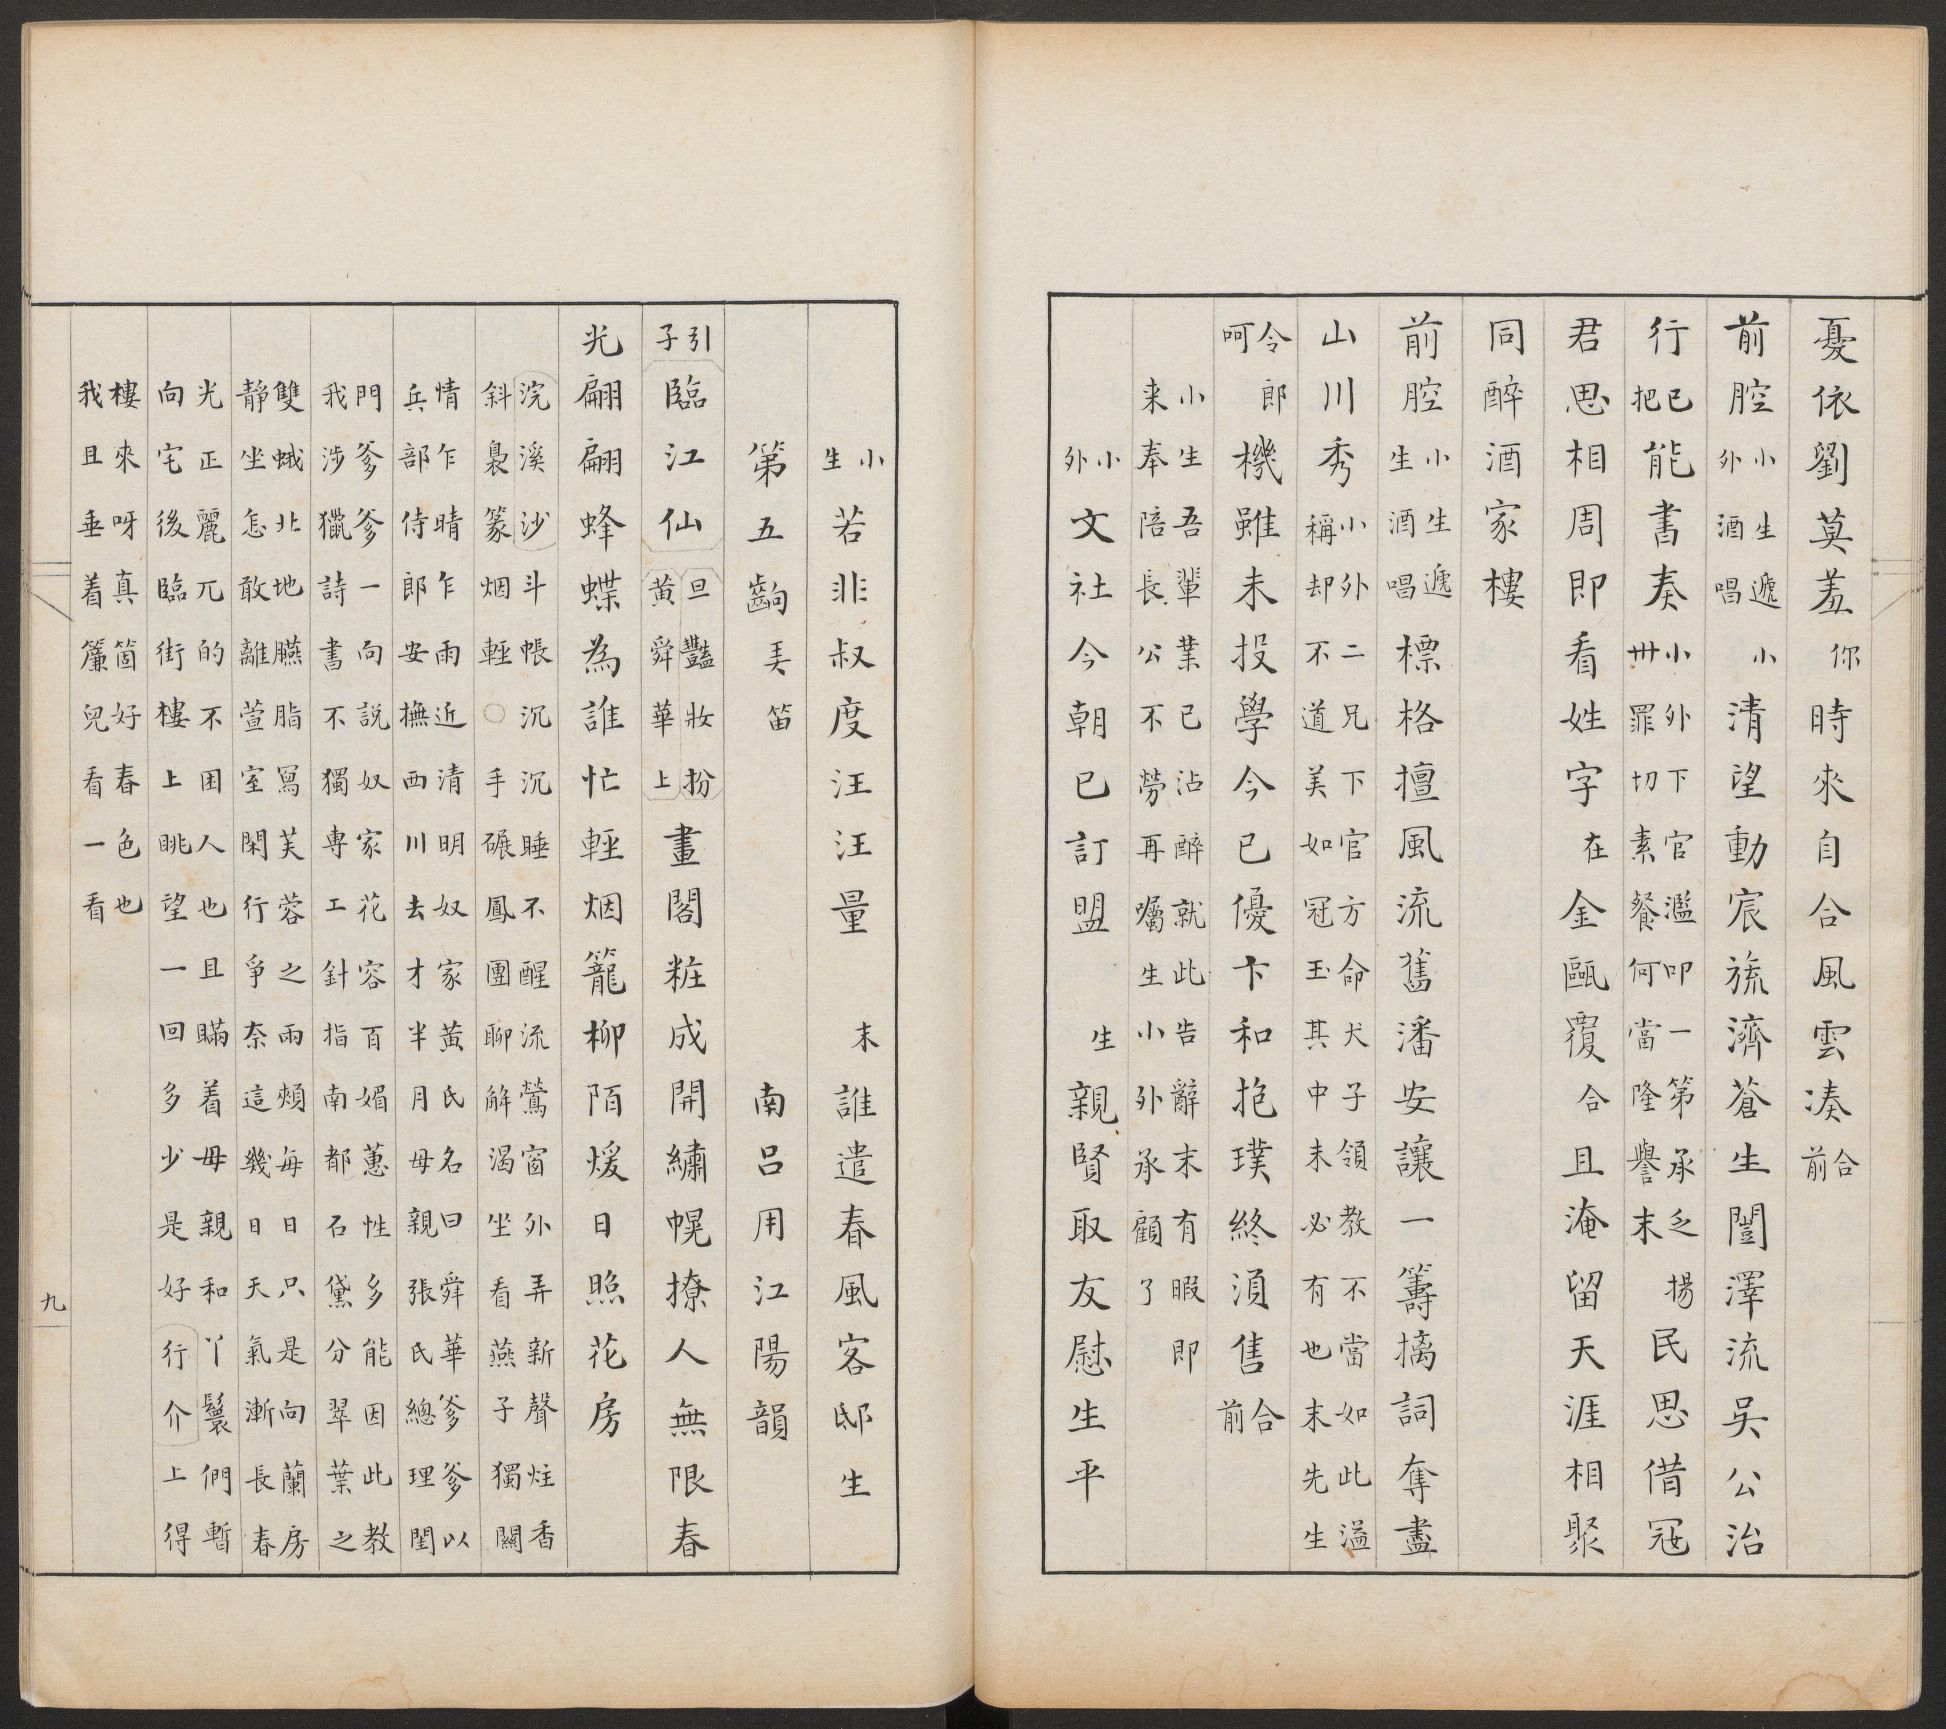 憂依劉莫羞你時來自合風雲湊合前
前腔小生遞小外酒唱清望動宸旒濟蒼生闓澤流吳公治
行已把能書奏小外下官濫叨一第承乏卅罪切素餐何當隆譽末揚民思借冠
君思相周即看姓字在金甌覆合且淹留天涯相聚
同醉酒家樓
前腔小生遞生酒唱標格擅風流舊潘安讓一籌摛詞奪盡
山川秀小外二兄下官方命犬子領教不當如此溢稱却不道美如冠玉其中未必有也末先生
令郎呵機雖未投學今已優卞和抱璞終須售合前
小生吾輩業已沾醉就此告辭末有暇即来奉陪長公不勞再囑生小外承顧了
小外文社今朝已訂盟生親賢取友慰生平
小生若非叔度汪汪量末誰遣春風客邸生
第五齣美笛南呂用江陽韻
引子臨江仙旦豔妝扮黃舜華上畫閣粧成開繡幌撩人無限春
光翩翩蜂蝶為誰忙輕烟籠柳陌煖日照花房
浣溪沙斗帳沉沉睡不醒流鶯窗外弄新聲炷香
斜裊篆烟輕○手碾鳳團聊解渴坐看燕子獨關
情乍晴乍雨近清明奴家黃氏名曰舜華爹爹以
兵部侍郎安撫西川去才半月母親張氏總理閨
門爹爹一向說奴家花容百媚蕙性多能因此教
我涉獵詩書不獨專工針指南都石黛分翠葉之
雙蛾北地臙脂寫芙蓉之兩頰每日只是向蘭房
靜坐怎敢離萱室閑行爭奈這幾日天氣漸長春
光正麗兀的不困人也且瞞着母親和丫鬟們暫
向宅後臨街樓上眺望一回多少是好行介上得
樓來呀真箇好春色也
我且垂着簾兒看一看
九